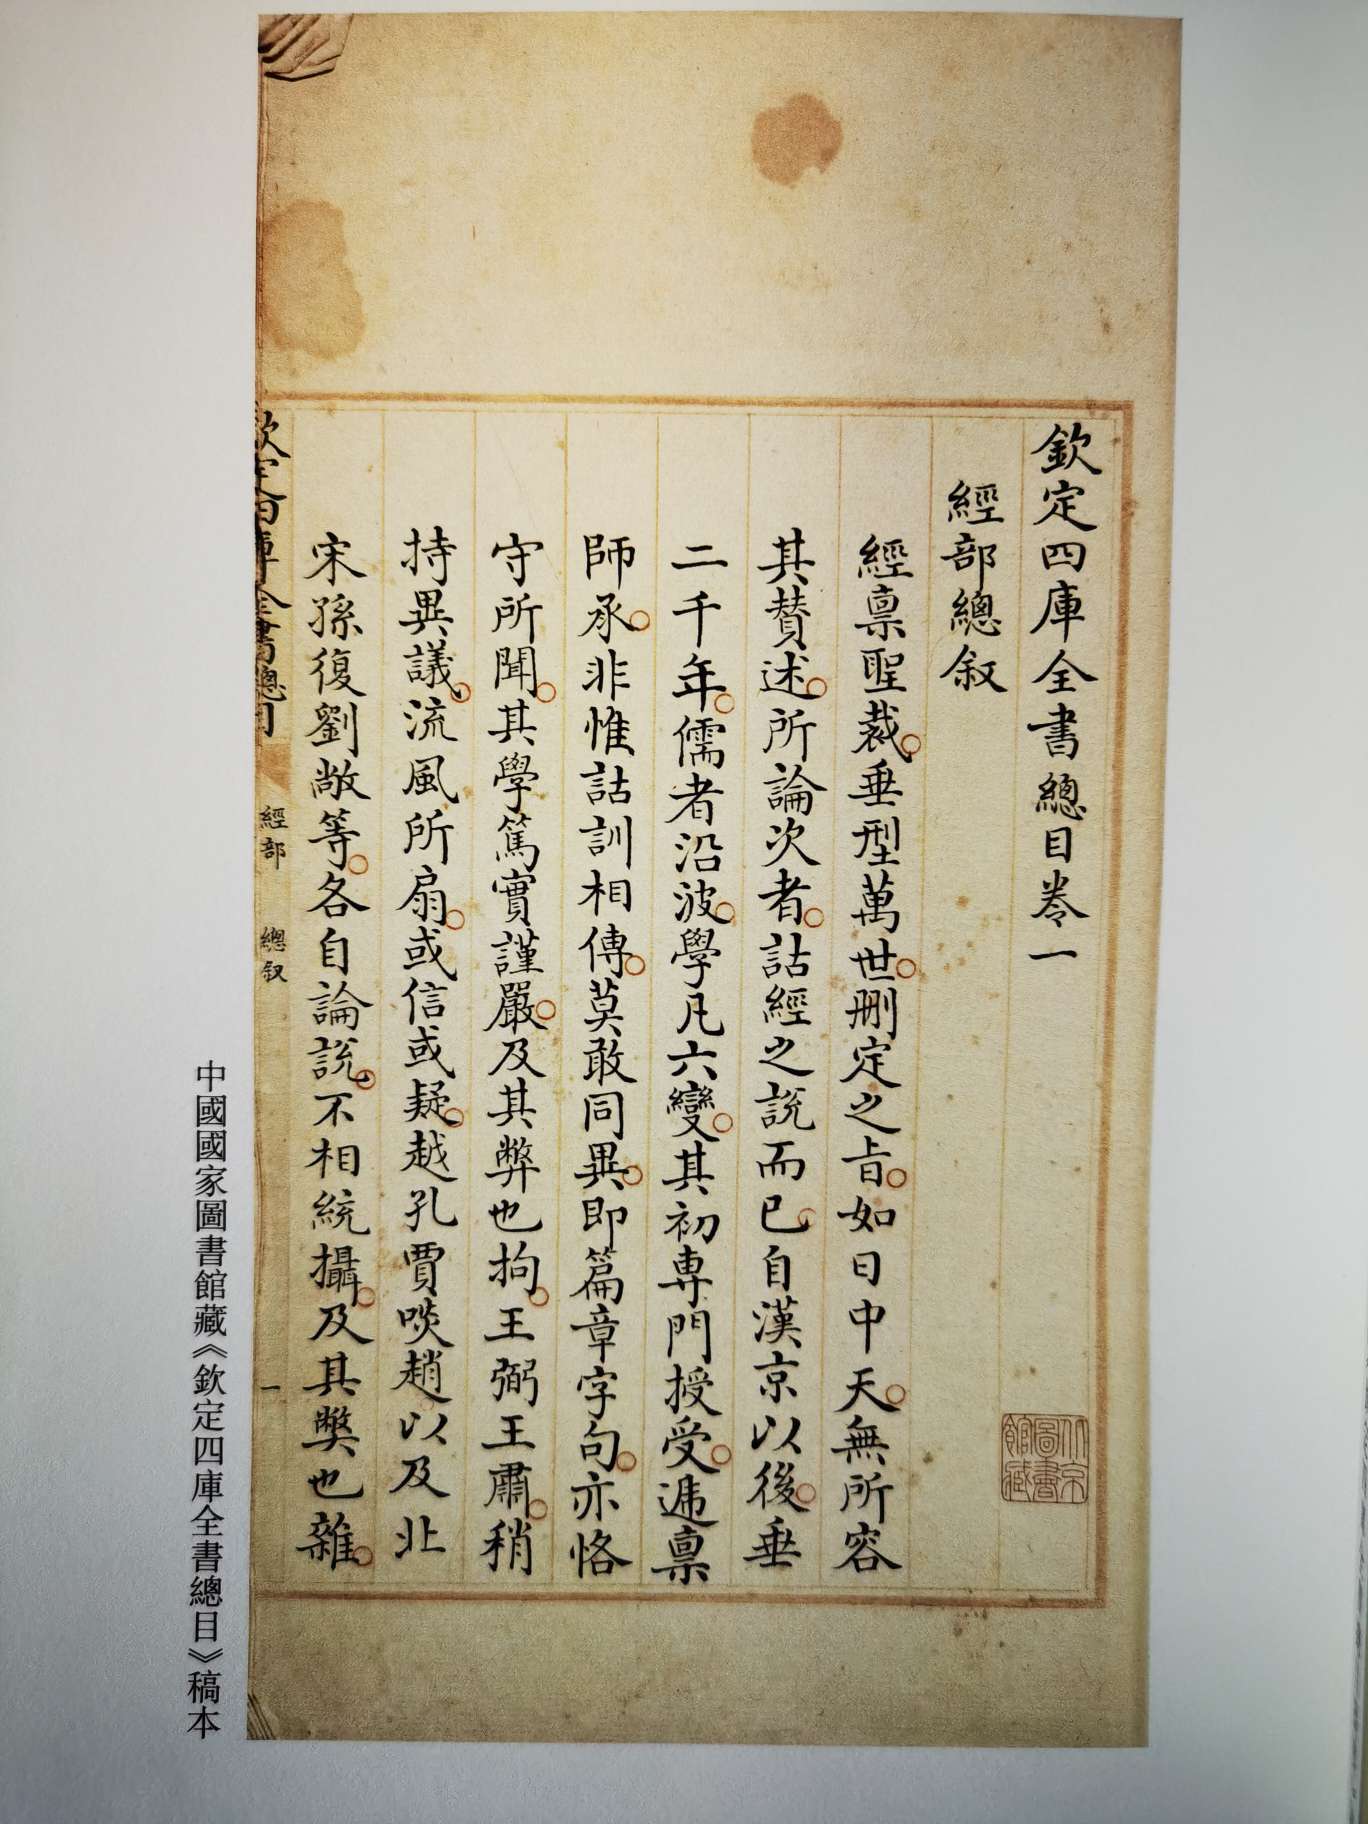 欽定四庫全書總目卷一
經部總叙
經稟聖裁垂型萬世刪定之旨如日中天無所容
其賛述所論次者詁經之說而已自漢京以後垂
二千年儒者沿波學凡六變其初專門授受遞稟
師承非惟詁訓相傳莫敢同異即篇章字句亦恪
守所聞其學篤實謹嚴及其弊也拘王弼王肅稍
持異議流風所扇或信或疑越孔賈啖趙以及北
宋孫復劉敞等各自論說不相統攝及其弊也雜
欽定四庫全書總目
經部 總叙
一
北京
圖書
館藏
中國國家圖書館藏《欽定四庫全書總目》稿本